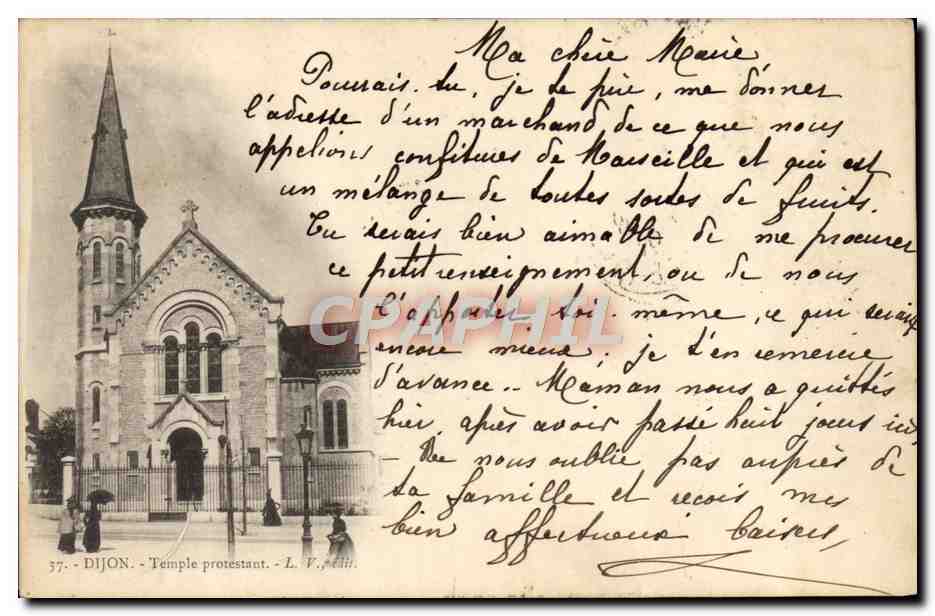 Ma chère Marie,
Pourrais-tu, je te prie, me donner
l'adresse d'un marchand de ce que nous
appelions confitures de Marseille et qui est
un mélange de toutes sortes de fruits.
Tu serais bien aimable de me procurer
ce petit renseignement, ou de nous
l'apporter toi-même, ce qui serait
encore mieux. je t'en remercie
d'avance.. Maman nous a quittés
hier, après avoir passé huit jours ici,
- Ne nous oublie pas auprès de
ta famille et reçois mes
bien affectueux baisers,
CPAPHIL
37. - DIJON. - Temple protestant. - L. V., édit.